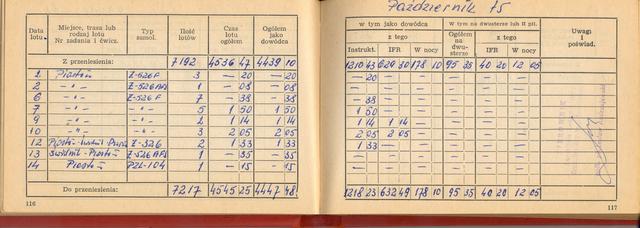 Październik 75
Data lotu. Miejsce, trasa lub rodzaj lotu Nr zadania i ćwicz. Typ samol. Ilość lotów Czas lotu ogółem Ogółem jako dowódca
w tym jako dowódca W tym na dwusterze lub II pil. Uwagi i poświad.
z tego Ogółem na dwusterze z tego
Instrukt. IFR W nocy IFR W nocy
Z przeniesienia: 7192 4536 47 4439 10 1210 43 630 30 178 10 95 35 40 20 12 05
2 Piastów Z-526F 3 — 20 — 20 — 20 — — — — —
2 -"- Z-526AFS 1 — 08 — 08 — — — — — —
6 -"- Z-526F 7 — 38 — 38 — 38 — — — — —
7 -"- -"- 5 1 50 1 50 1 50 — — — — —
9 -"- -"- 2 1 14 1 14 1 14 1 14 — — — —
10 -"- -"- 3 2 05 2 05 2 05 2 05 — — — —
12 Z-526 2 1 33 1 33 1 33 — — — — —
13 Świdnik-Piastów Z-526AFS 1 — 35 — 35 — — — — — —
14 Piastów PZL-104 1 — 15 — 15 — — — — — —
Do przeniesienia: 7217 4545 25 4447 48 1218 23 632 49 178 10 95 35 40 20 12 05
116 117